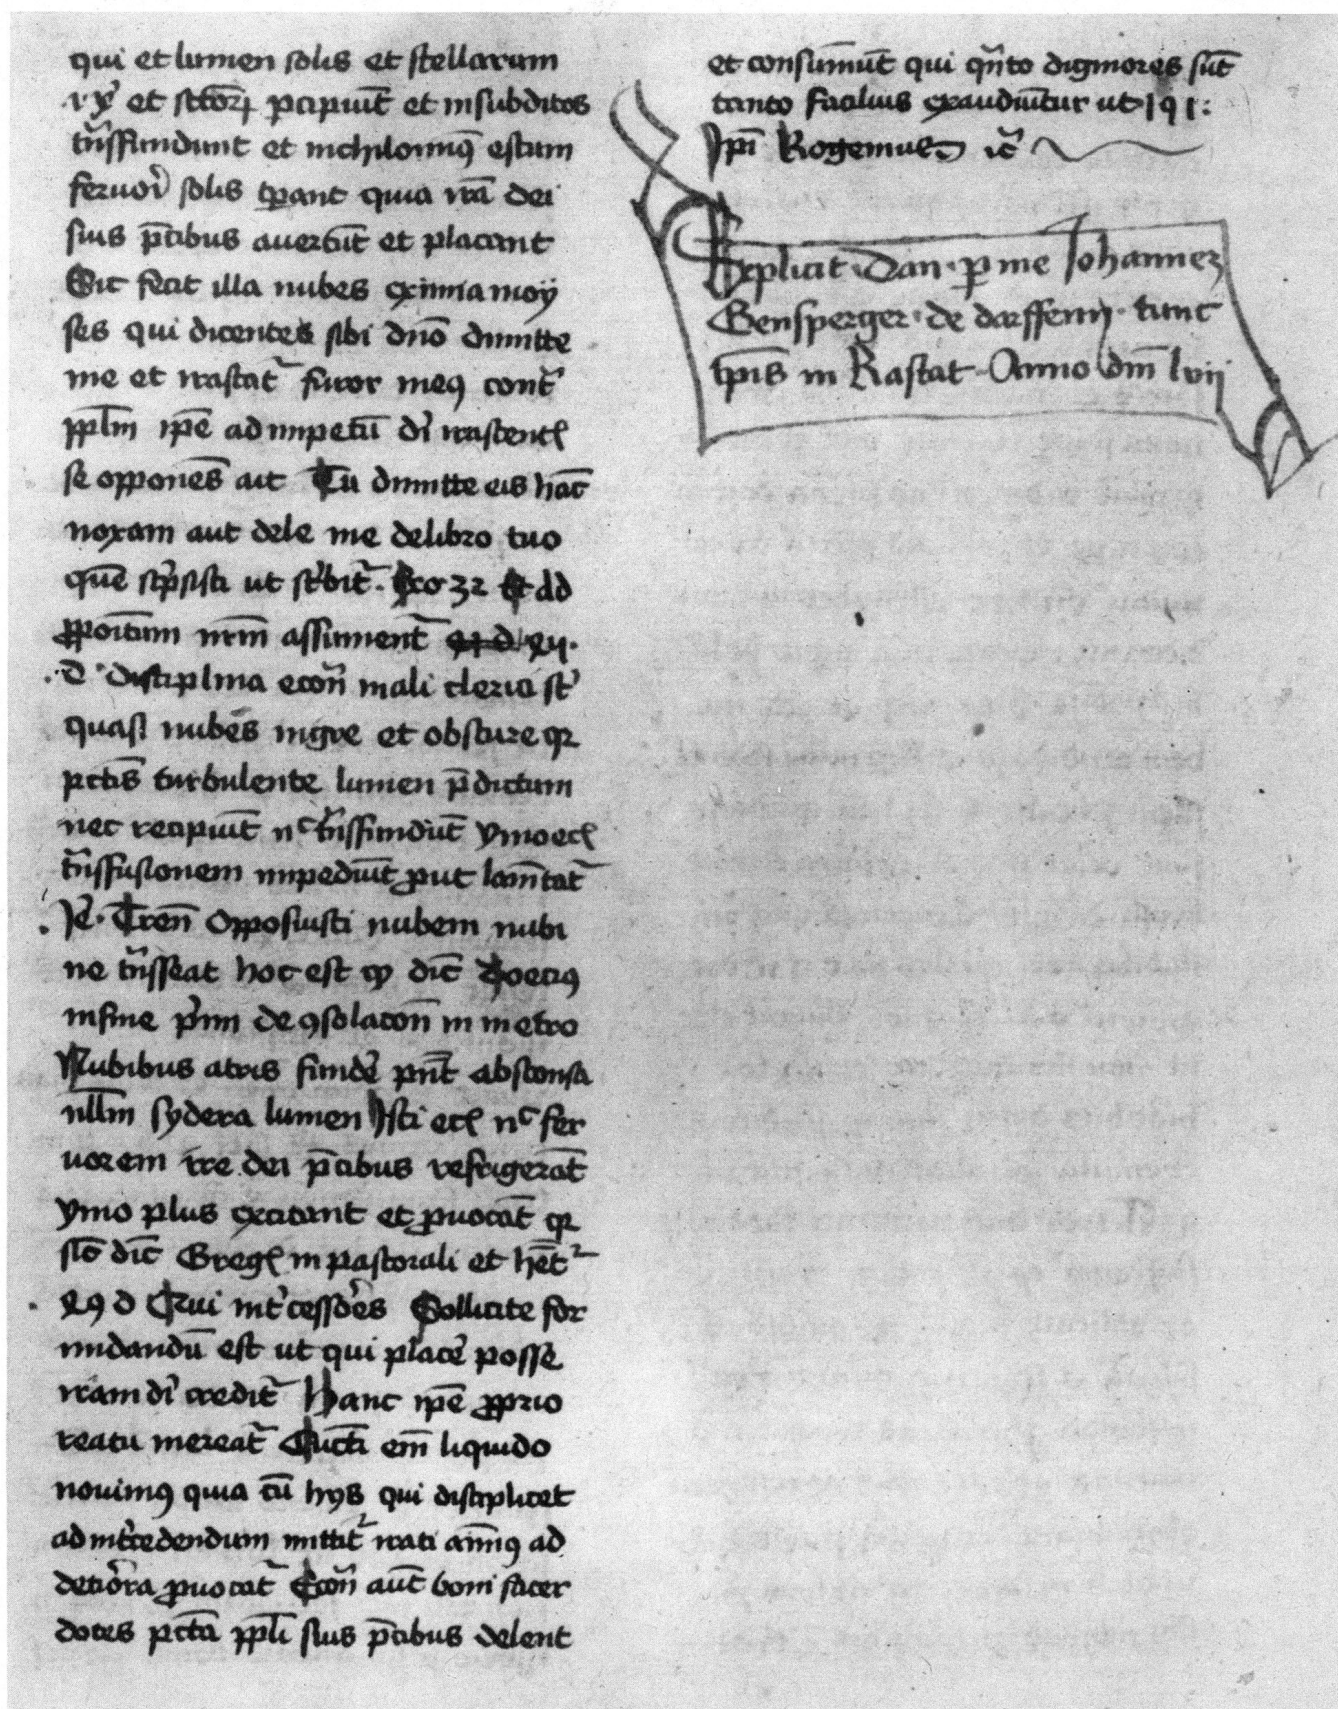 qui et lumen solis et stellarum
et sctoꝝ ꝑcipiūt et in subditos
tᵃnsffundunt et nichilominꝰ estum
feruoꝛ̄ solis tꝑant quia irā dei
suis p̄cibus auertūt et placant
Sic fecit illa nubes eximia moy
ses qui dicentes sibi dn̄o dimitte
me et irascat᷑ furor meꝰ cont̄ᵃ
ppl̄m ip̄e ad impetū dī irascent
se opponēs ait Tu dimitte eis hāc
noxam aut dele me de libro tuo
quē sc̄psisti ut sc̄bit᷑. Exo 32 Et ad
ꝓpoītum nr̄m assument᷑
disciplina econᵃ mali clerici st̄
quasi nubes nigre et obscure qꝛ
pctīs turbulente lumen p̄dictum
nec recipiūt nᶜ tᵃnsffundūt ymo ecᷓ
tᵃnsffusionem impediūt ꝓut lam̄tat᷑
Je᷑. Tren̄ Opposuisti nubem nubi
ne tᵃnsseat hoc est qꝫ dic̄ Boeciꝰ
in fine p̄mi de ꝯsolacōn in metro
Nubibus atris fundē pn̄t abscona
nll̄m sydera lumen Isti ecᷓ nᶜ fer
uorem ire dei p̄cibus refrigerāt
ymo plus excitant et ꝓuocāt qꝛ
sic̄ dic̄ Gregᷓ in pastorali et hēt᷑
Qui int̄cessōēs Sollicite for
midandū est ut qui placē posse
iram dī credit᷑ Hanc ip̄e ꝓprio
reatu mereat᷑ Cūcti em̄ liquido
nouimꝰ quia cū hys qui disciplicet
ad int̄cedendum mittit᷑ irati aīmꝰ ad
deti͛ora ꝓuocat᷑ Ecōn aūt boni sacer
dotes pctā ppl̄i suis p̄cibus delent
et consūmūt qui qn̄to digniores sūt
tanto facilius exaudiūtur ut
Ip̄i Rogemus
Explicit. Dan. ꝑ me Johannez
Gensperger. de dorffenn. tunc
tp̄is in Rastat. Anno dm̄ lvii